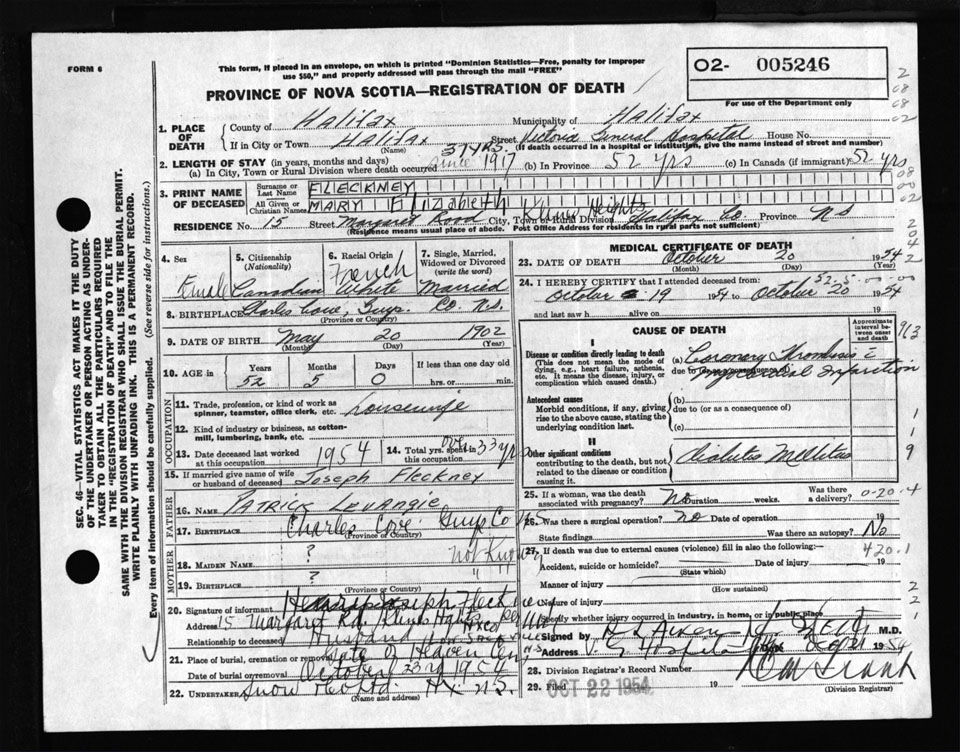 FORM 6
This form, if placed in an envelope, on which is printed "Dominion Statistics—Free, penalty for improper
use $50," and properly addressed will pass through the mail "FREE"
PROVINCE OF NOVA SCOTIA—REGISTRATION OF DEATH
O2- 005246
For use of the Department only
1. PLACE OF DEATH
County of Halifax Municipality of Halifax
If in City or Town Halifax (Name) Street Victoria General Hospital House No.
(If death occurred in a hospital or institution, give the name instead of street and number)
2. LENGTH OF STAY (in years, months and days)
(a) In City, Town or Rural Division where death occurred 37 yrs. since 1917 (b) In Province 52 yrs (c) In Canada (if immigrant) 52 yrs
3. PRINT NAME OF DECEASED
Surname or Last Name FLECKNEY
All Given or Christian Names MARY ELIZABETH
RESIDENCE No. 15 Street Margaret Road City, Town or Rural Heights Halifax Co. Province N S
(Residence means usual place of abode. Post Office Address for residents in rural parts not sufficient)
4. Sex Female
5. Citizenship (Nationality) Canadian
6. Racial Origin French White
7. Single, Married, Widowed or Divorced (write the word) Married
8. BIRTHPLACE Charles Cove, Guys. Co. N.S.
(Province or Country)
9. DATE OF BIRTH May 20 1902
(Month) (Day) (Year)
10. AGE in Years 52 Months 5 Days 0 If less than one day hrs. or min.
OCCUPATION
11. Trade, profession, or kind of work as spinner, teamster, office clerk, etc. Housewife
12. Kind of industry or business, as cotton-mill, lumbering, bank, etc.
13. Date deceased last worked at this occupation 1954
14. Total yrs. spent in this occupation over 33 yrs
15. If married give name of wife or husband of deceased Joseph Fleckney
FATHER
16. NAME PATRICK LEVANGIE
17. BIRTHPLACE Charles Cove Guys Co
(Province or Country)
MOTHER
18. MAIDEN NAME ? Not Known
19. BIRTHPLACE ? " "
(Province or Country)
20. Signature of informant Joseph Fleckney
Address 15 Margaret Rd.
Relationship to deceased Husband
21. Place of burial, cremation or removal Gate of Heaven Cem.
Date of burial or removal October 23rd 1954
22. UNDERTAKER Snow & Co Ltd. Hx. N.S.
(Name and address)
MEDICAL CERTIFICATE OF DEATH
23. DATE OF DEATH October 20 1954
(Month) (Day)
24. I HEREBY CERTIFY that I attended deceased from:
October 19 1954 to October 20 1954
and last saw h alive on 19
CAUSE OF DEATH
Approximate interval between onset and death
I
Disease or condition directly leading to death
(This does not mean the mode of dying, e.g., heart failure, asthenia, etc. It means the disease, injury, or complication which caused death.)
(a) Coronary Thrombosis c̄
due to (or as a consequence of) myocardial infarction
Antecedent causes
Morbid conditions, if any, giving rise to the above cause, stating the underlying condition last.
(b)
due to (or as a consequence of)
(c)
II
Other significant conditions
contributing to the death, but not related to the disease or condition causing it.
Diabetes Mellitus
25. If a woman, was the death associated with pregnancy? No Duration weeks. Was there a delivery?
0-20.4
26. Was there a surgical operation? No Date of operation
State findings Was there an autopsy? No
27. If death was due to external causes (violence) fill in also the following:—
420.1
Accident, suicide or homicide? Date of injury 19
(State which)
Manner of injury
(How sustained)
Nature of injury
Specify whether injury occurred in industry, in home, or in public place
Signed by M.D.
Address V. G. Hospital Date Oct 21 1954
28. Division Registrar's Record Number
29. Filed OCT 22 1954 19
(Division Registrar)
SEC. 46—VITAL STATISTICS ACT MAKES IT THE DUTY
OF THE UNDERTAKER OR PERSON ACTING AS UNDER-
TAKER TO OBTAIN ALL THE PARTICULARS REQUIRED
IN THE "REGISTRATION OF DEATH" AND TO FILE THE
SAME WITH THE DIVISION REGISTRAR WHO SHALL ISSUE THE BURIAL PERMIT.
WRITE PLAINLY WITH UNFADING INK. THIS IS A PERMANENT RECORD.
Every item of information should be carefully supplied. (See reverse side for instructions.)